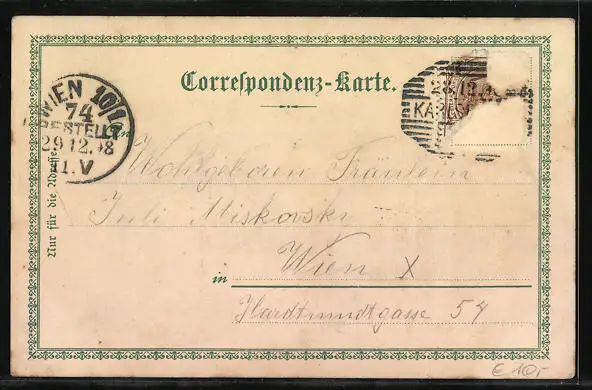 Correspondenz-Karte.
WIEN 10/1
74
BESTELLT
29.12.98
1.V
28.12.
KARL
Nur für die Adresse
An
Wohlgeboren Fräulein
Juli Miskovski
in Wien X
Hardtmuthgasse 54
€ 10,-